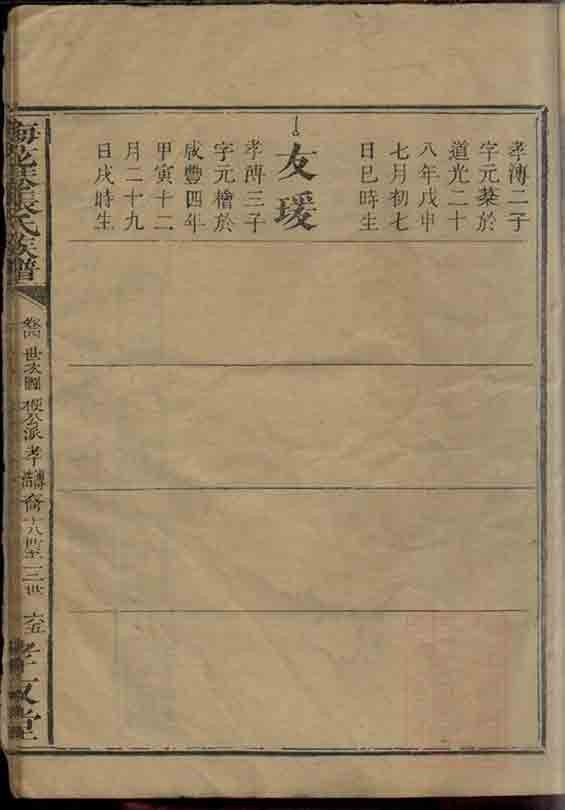 孝溥二子
字元棻於
道光二十
八年戊申
七月初七
日巳時生
友瑗
孝溥三子
字元檜於
咸豐四年
甲寅十二
月二十九
日戌時生
張氏族譜
世次圖
公派
孝
裔
十八世至
世
孝友堂